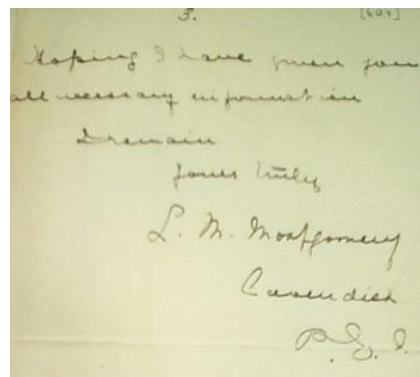 5. [604]
Hoping I have given you
all necessary information
I remain
Yours truly
L. M. Montgomery
Cavendish
P. E. I.